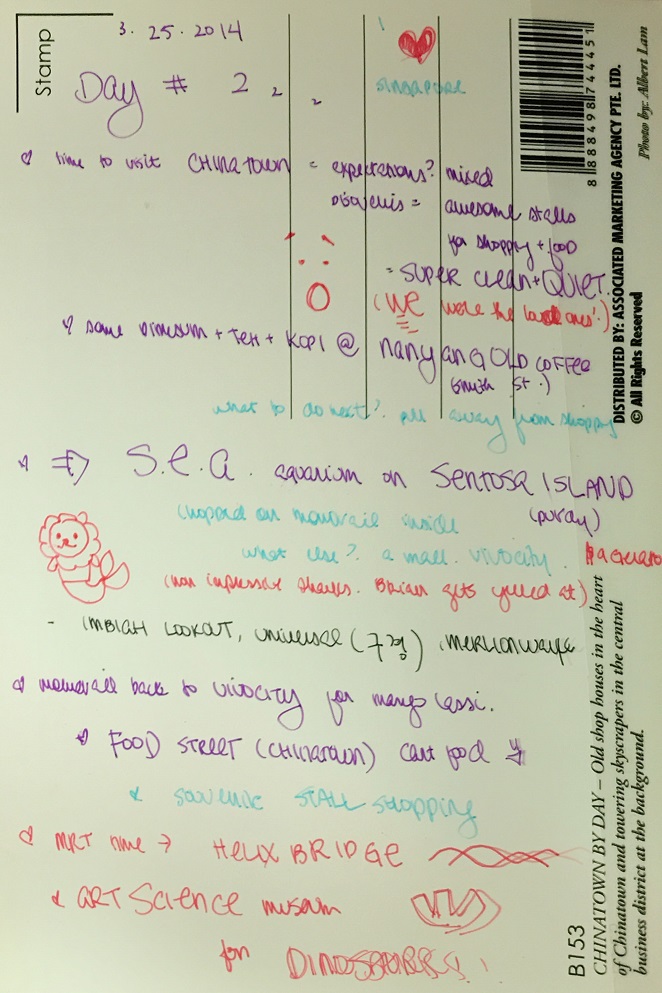 Stamp
3.25.2014
Day # 2 2 2
SINGAPORE
time to visit CHINATOWN = expectations? mixed
= awesome stalls
for shopping + food
= SUPER CLEAN + QUIET.
(WE were the loud ones!)
some Dimsum + TEH + KOPI @ nanyang OLD COFFEE
(Smith St.)
what to do next? away from shopping
⇒ S.E.A. aquarium on SENTOSA ISLAND
(hopped on monorail inside
what else? a mall. vivocity.
(non impressive sharks. Brian gets yelled at)
- IMBIAH LOOKOUT, universal (7 , merlion walk
monorail back to vivocity for mango lassi.
FOOD STREET (CHINATOWN) cart food
& souvenir STALL shopping
MRT time → HELIX BRIDGE
& ART Science museum
for DINOSAURS!!
8 888498 744451
DISTRIBUTED BY: ASSOCIATED MARKETING AGENCY PTE. LTD.
© All Rights Reserved
Photo by: Albert Lam
B153
CHINATOWN BY DAY – Old shop houses in the heart
of Chinatown and towering skyscrapers in the central
business district at the background.